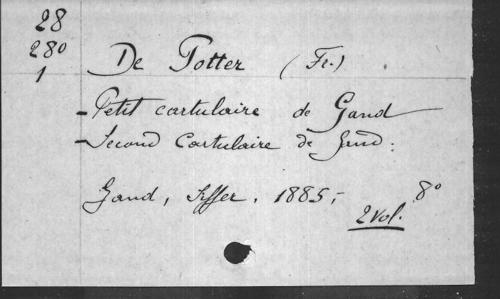 28
280
1
De Potter (Fr.)
- Petit cartulaire de Gand
- Second Cartulaire de Gand:
Gand, Siffer, 1885,-
8°
2 vol.